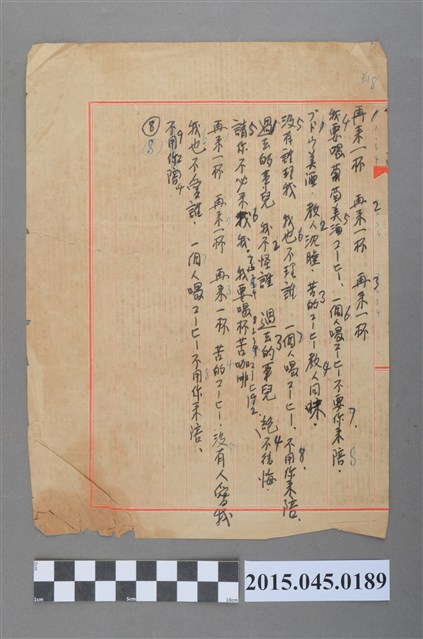 318
再来一杯 再来一杯 再来一杯
我要喝葡萄美酒コーヒー、一個人喝コーヒー不要你来陪.
ブドウ美酒.教人沈睡.苦的コーヒー教人回味.
没有誰理我 我也不理誰 一個人喝コーヒー、不用你来陪.
過去的事兒 我不怪誰 過去的事兒 絕不後悔.
請你不必来找我.我要喝杯苦咖啡
再来一杯 再来一杯 再来一杯 苦的コーヒー.没有人愛我
我也不愛誰.一個人喝コーヒー不用你来陪.
不用你陪.
⑧
8
2015.045.0189
1cm
5cm
10cm